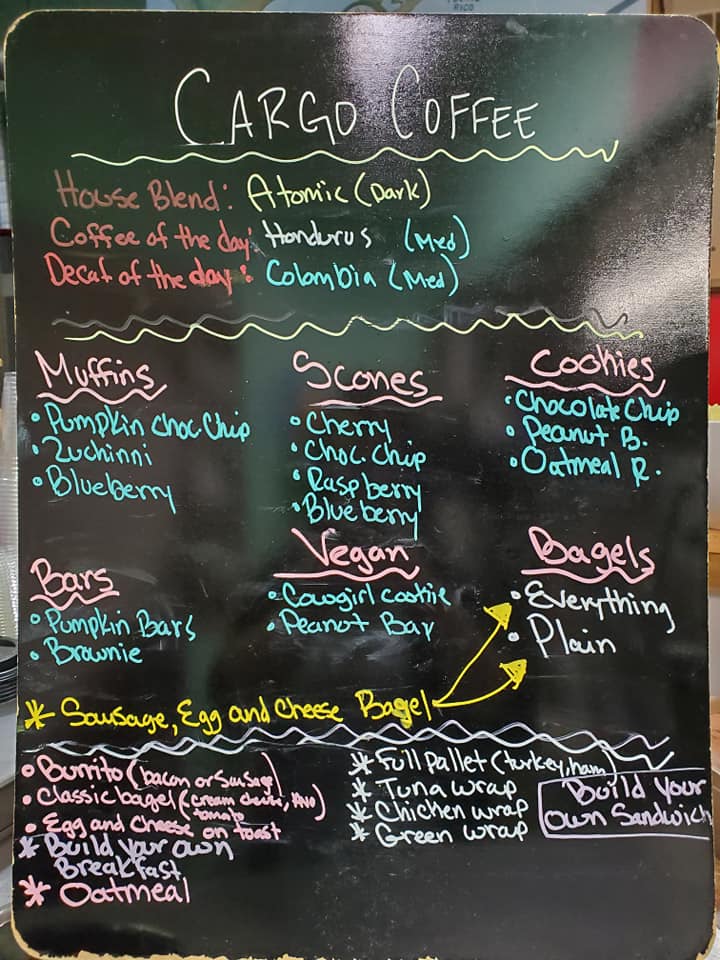 CARGO COFFEE
House Blend: Atomic (Dark)
Coffee of the day: Hondurus (Med)
Decaf of the day: Colombia (Med)
Muffins
• Pumpkin choc. Chip
• Zuchinni
• Blueberry
Scones
• Cherry
• Choc. Chip
• Raspberry
• Blueberry
Cookies
• Chocolate Chip
• Peanut B.
• Oatmeal R.
Bars
• Pumpkin Bars
• Brownie
Vegan
• Cowgirl cookie
• Peanut Bar
Bagels
• Everything
• Plain
* Sausage, Egg and Cheese Bagel
• Burrito (bacon or Sausage)
• Classic bagel (cream cheese,
tomato)
• Egg and Cheese on toast
* Build your own
Breakfast
* Oatmeal
* Full Pallet (turkey, ham)
* Tuna wrap
* Chicken wrap
* Green wrap
Build your
own Sandwich
RICO